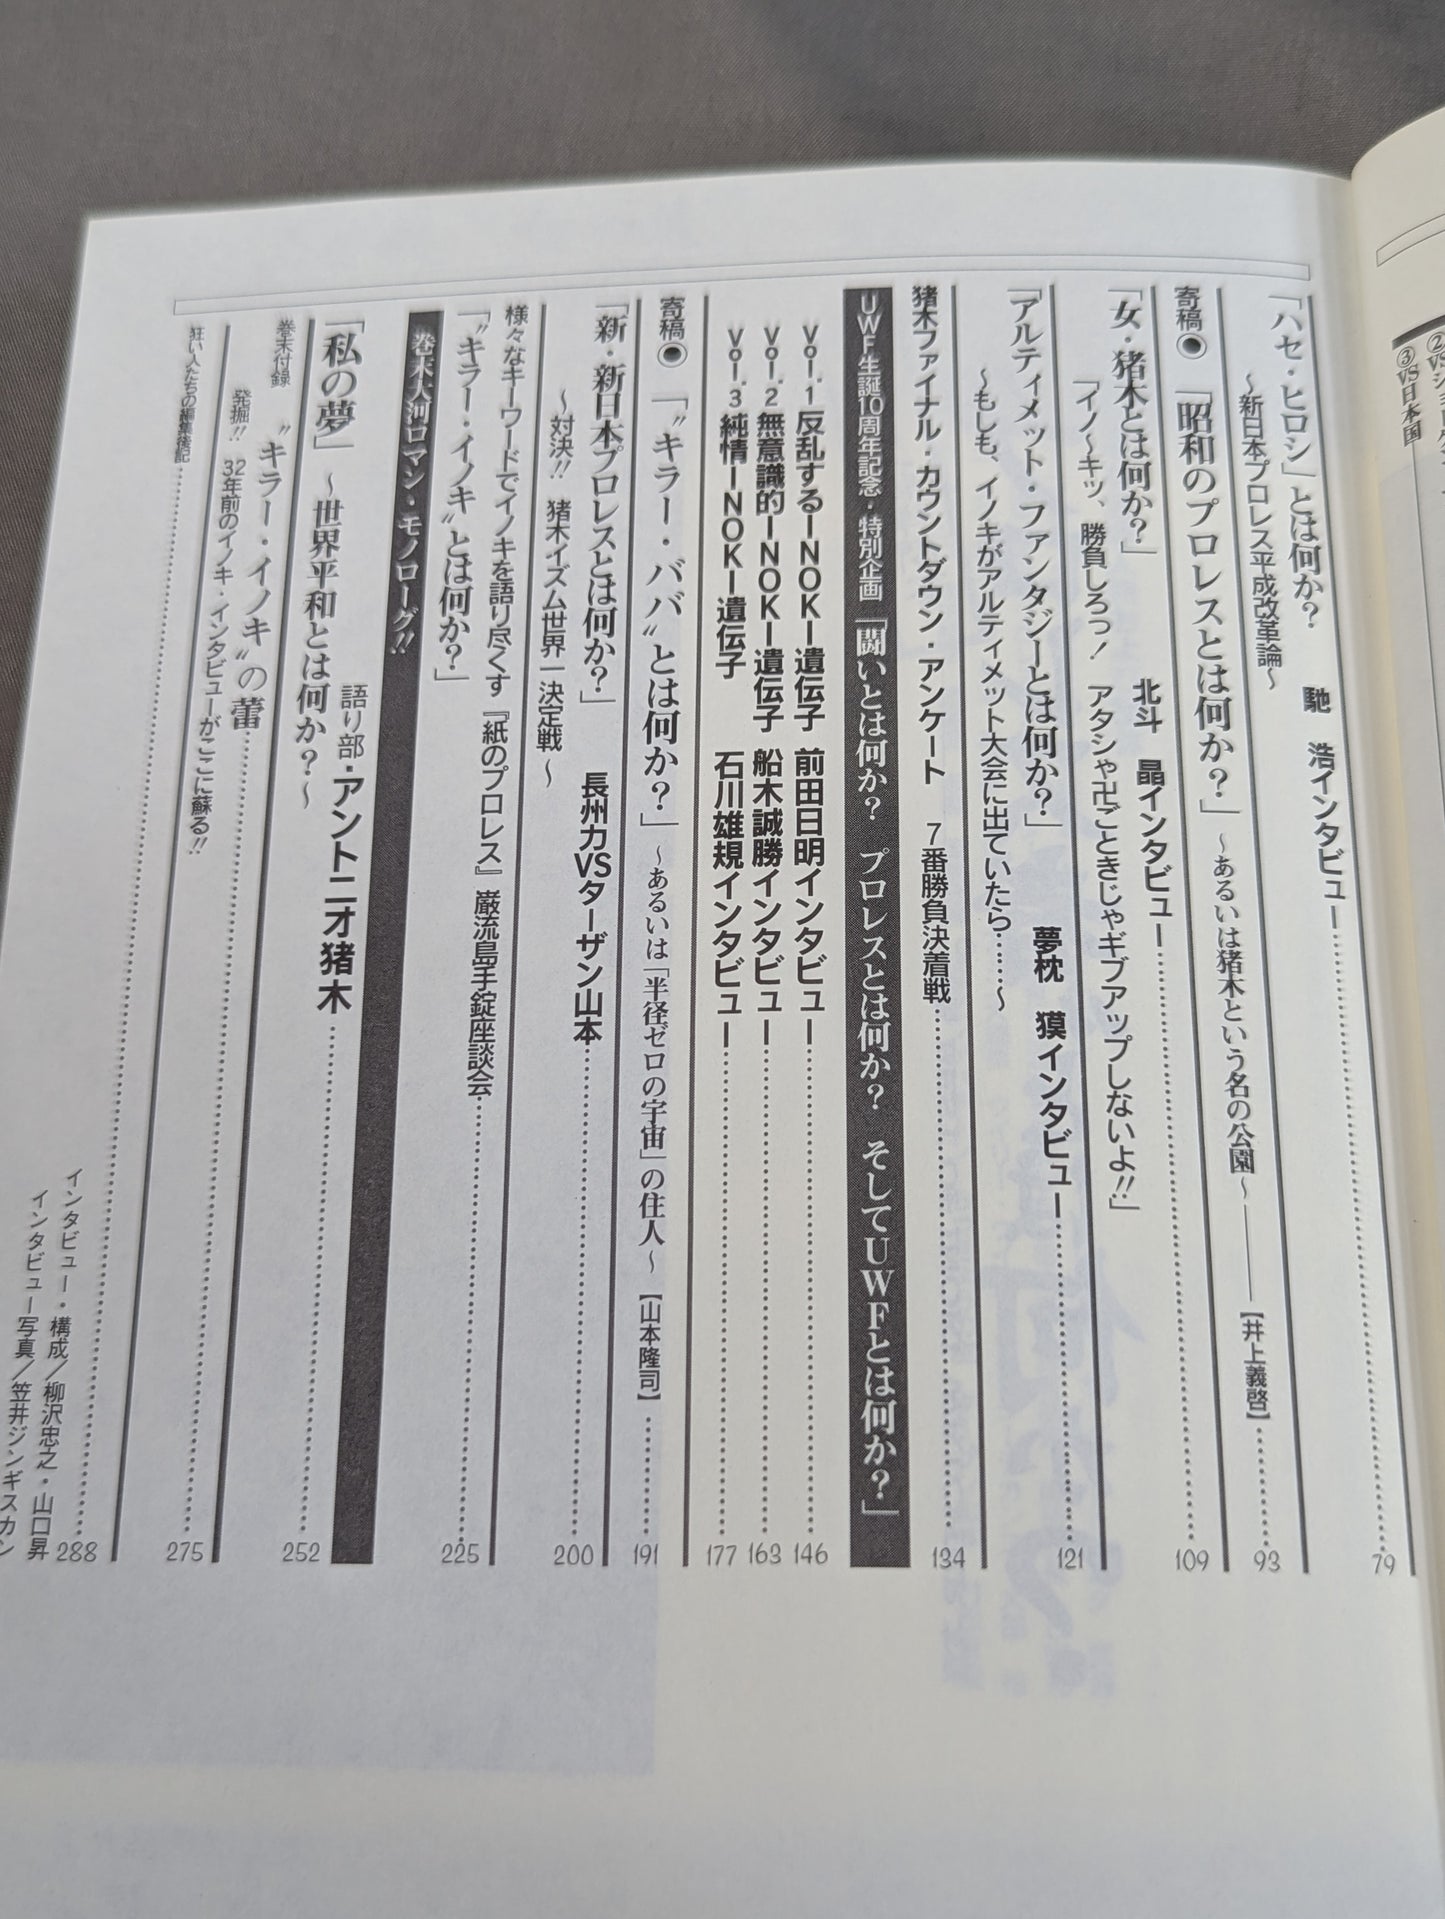 ②VSジ
③VS日本国
「ハセ・ヒロシ」とは何か？
〜新日本プロレス平成改革論〜
馳 浩インタビュー 79
寄稿◉「昭和のプロレスとは何か？」〜あるいは猪木という名の公園〜【井上義啓】 93
「女・猪木とは何か？」
北斗 晶インタビュー 109
「イノ〜キッ、勝負しろっ！ アタシャ卍ごときじゃギブアップしないよ!!」
「アルティメット・ファンタジーとは何か？」
夢枕 獏インタビュー 121
〜もしも、イノキがアルティメット大会に出ていたら……〜
猪木ファイナル・カウントダウン・アンケート 7番勝負決着戦 134
UWF生誕10周年記念・特別企画 「闘いとは何か？ プロレスとは何か？ そしてUWFとは何か？」
Vol.1 反乱するINOKI遺伝子 前田日明インタビュー 146
Vol.2 無意識的INOKI遺伝子 船木誠勝インタビュー 163
Vol.3 純情INOKI遺伝子 石川雄規インタビュー 177
寄稿◉「〝キラー・ババ〟とは何か？」〜あるいは「半径ゼロの宇宙」の住人〜【山本隆司】 191
「新・新日本プロレスとは何か？」
〜対決!! 猪木イズム世界一決定戦〜
長州力VSターザン山本 200
様々なキーワードでイノキを語り尽くす『紙のプロレス』巌流島手錠座談会 225
「〝キラー・イノキ〟とは何か？」
巻末大河ロマン・モノローグ!!
「私の夢」〜世界平和とは何か？〜
語り部・アントニオ猪木 252
巻末付録 〝キラー・イノキ〟の蕾 275
発掘!! 32年前のイノキ・インタビューがここに蘇る!!
狂い人たちの編集後記 288
インタビュー・構成／柳沢忠之・山口昇
インタビュー写真／笠井ジンギスカン